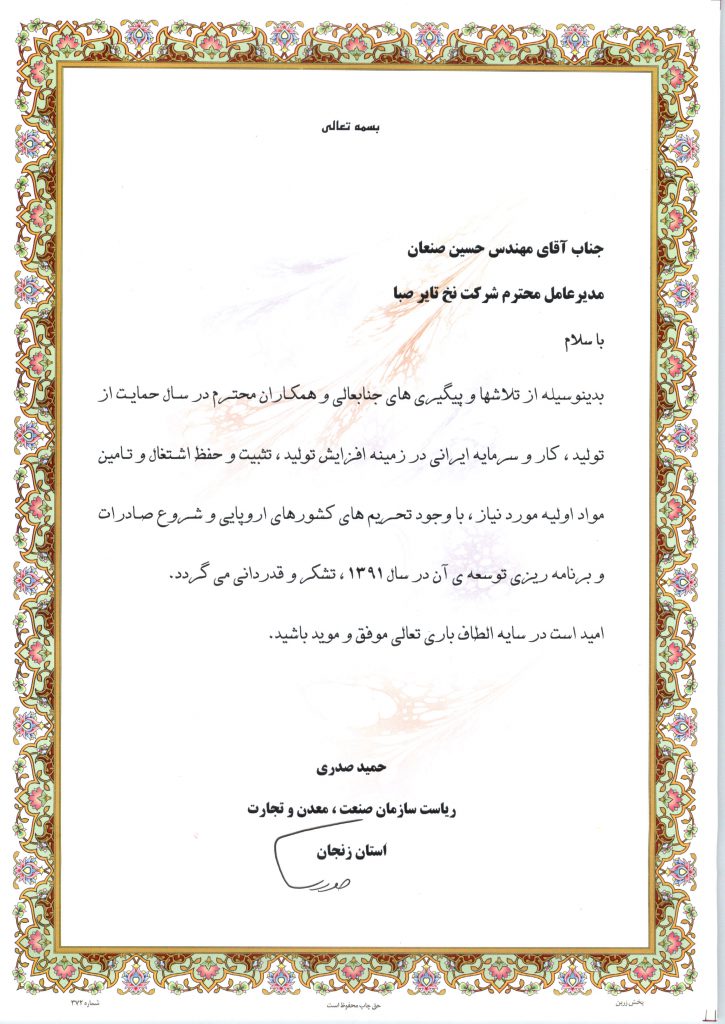 بسمه تعالی
جناب آقای مهندس حسین صنعان
مدیرعامل محترم شرکت نخ تایر صبا
با سلام
بدینوسیله از تلاشها و پیگیری های جنابعالی و همکاران محترم در سال حمایت از
تولید ، کار و سرمایه ایرانی در زمینه افزایش تولید ، تثبیت و حفظ اشتغال و تامین
مواد اولیه مورد نیاز ، با وجود تحریم های کشورهای اروپایی و شروع صادرات
و برنامه ریزی توسعه ی آن در سال ۱۳۹۱ ، تشکر و قدردانی می گردد.
امید است در سایه الطاف باری تعالی موفق و موید باشید.
حمید صدری
ریاست سازمان صنعت ، معدن و تجارت
استان زنجان
پخش زرین
حق چاپ محفوظ است
شماره ۳۷۲